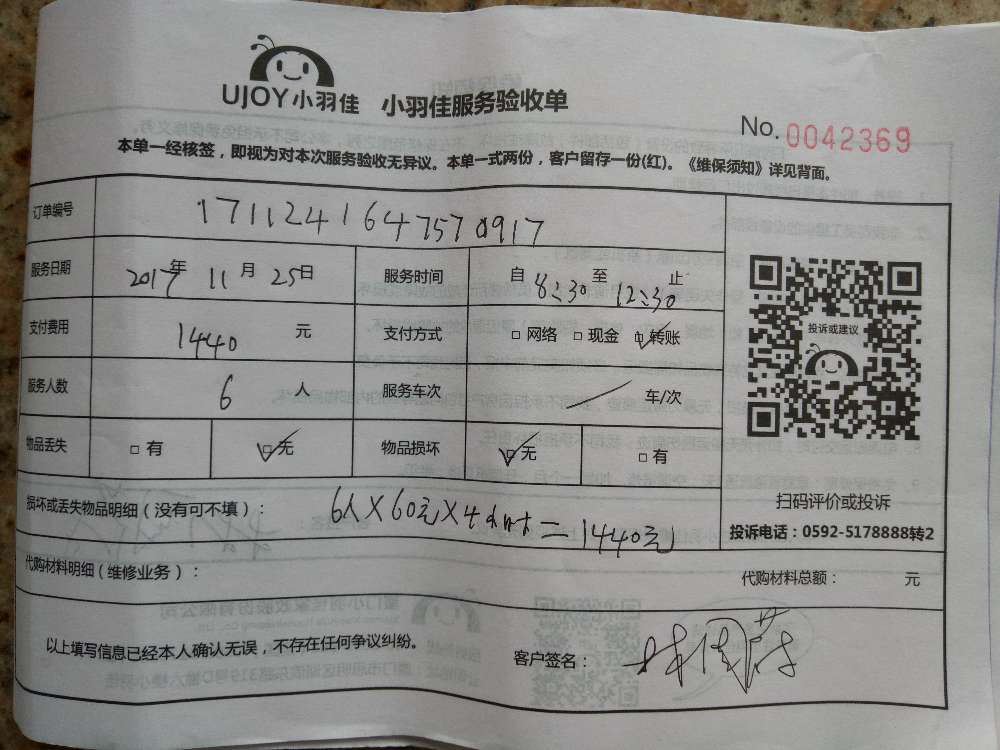 UJOY小羽佳 小羽佳服务验收单
No. 0042369
本单一经核签，即视为对本次服务验收无异议。本单一式两份，客户留存一份(红)。《维保须知》详见背面。
订单编号 17112416475770917
服务日期 2017年 11月 25日 服务时间 自 8:30 至 12:30 止
支付费用 1440 元 支付方式 □网络 □现金 ☑转账
服务人数 6 人 服务车次 / 车/次
物品丢失 □有 ☑无 物品损坏 ☑无 □有
投诉或建议
扫码评价或投诉
投诉电话：0592-5178888转2
损坏或丢失物品明细（没有可不填）： 6人×60元×4小时=1440元
代购材料明细（维修业务）： 代购材料总额： 元
以上填写信息已经本人确认无误，不存在任何争议纠纷。 客户签名：